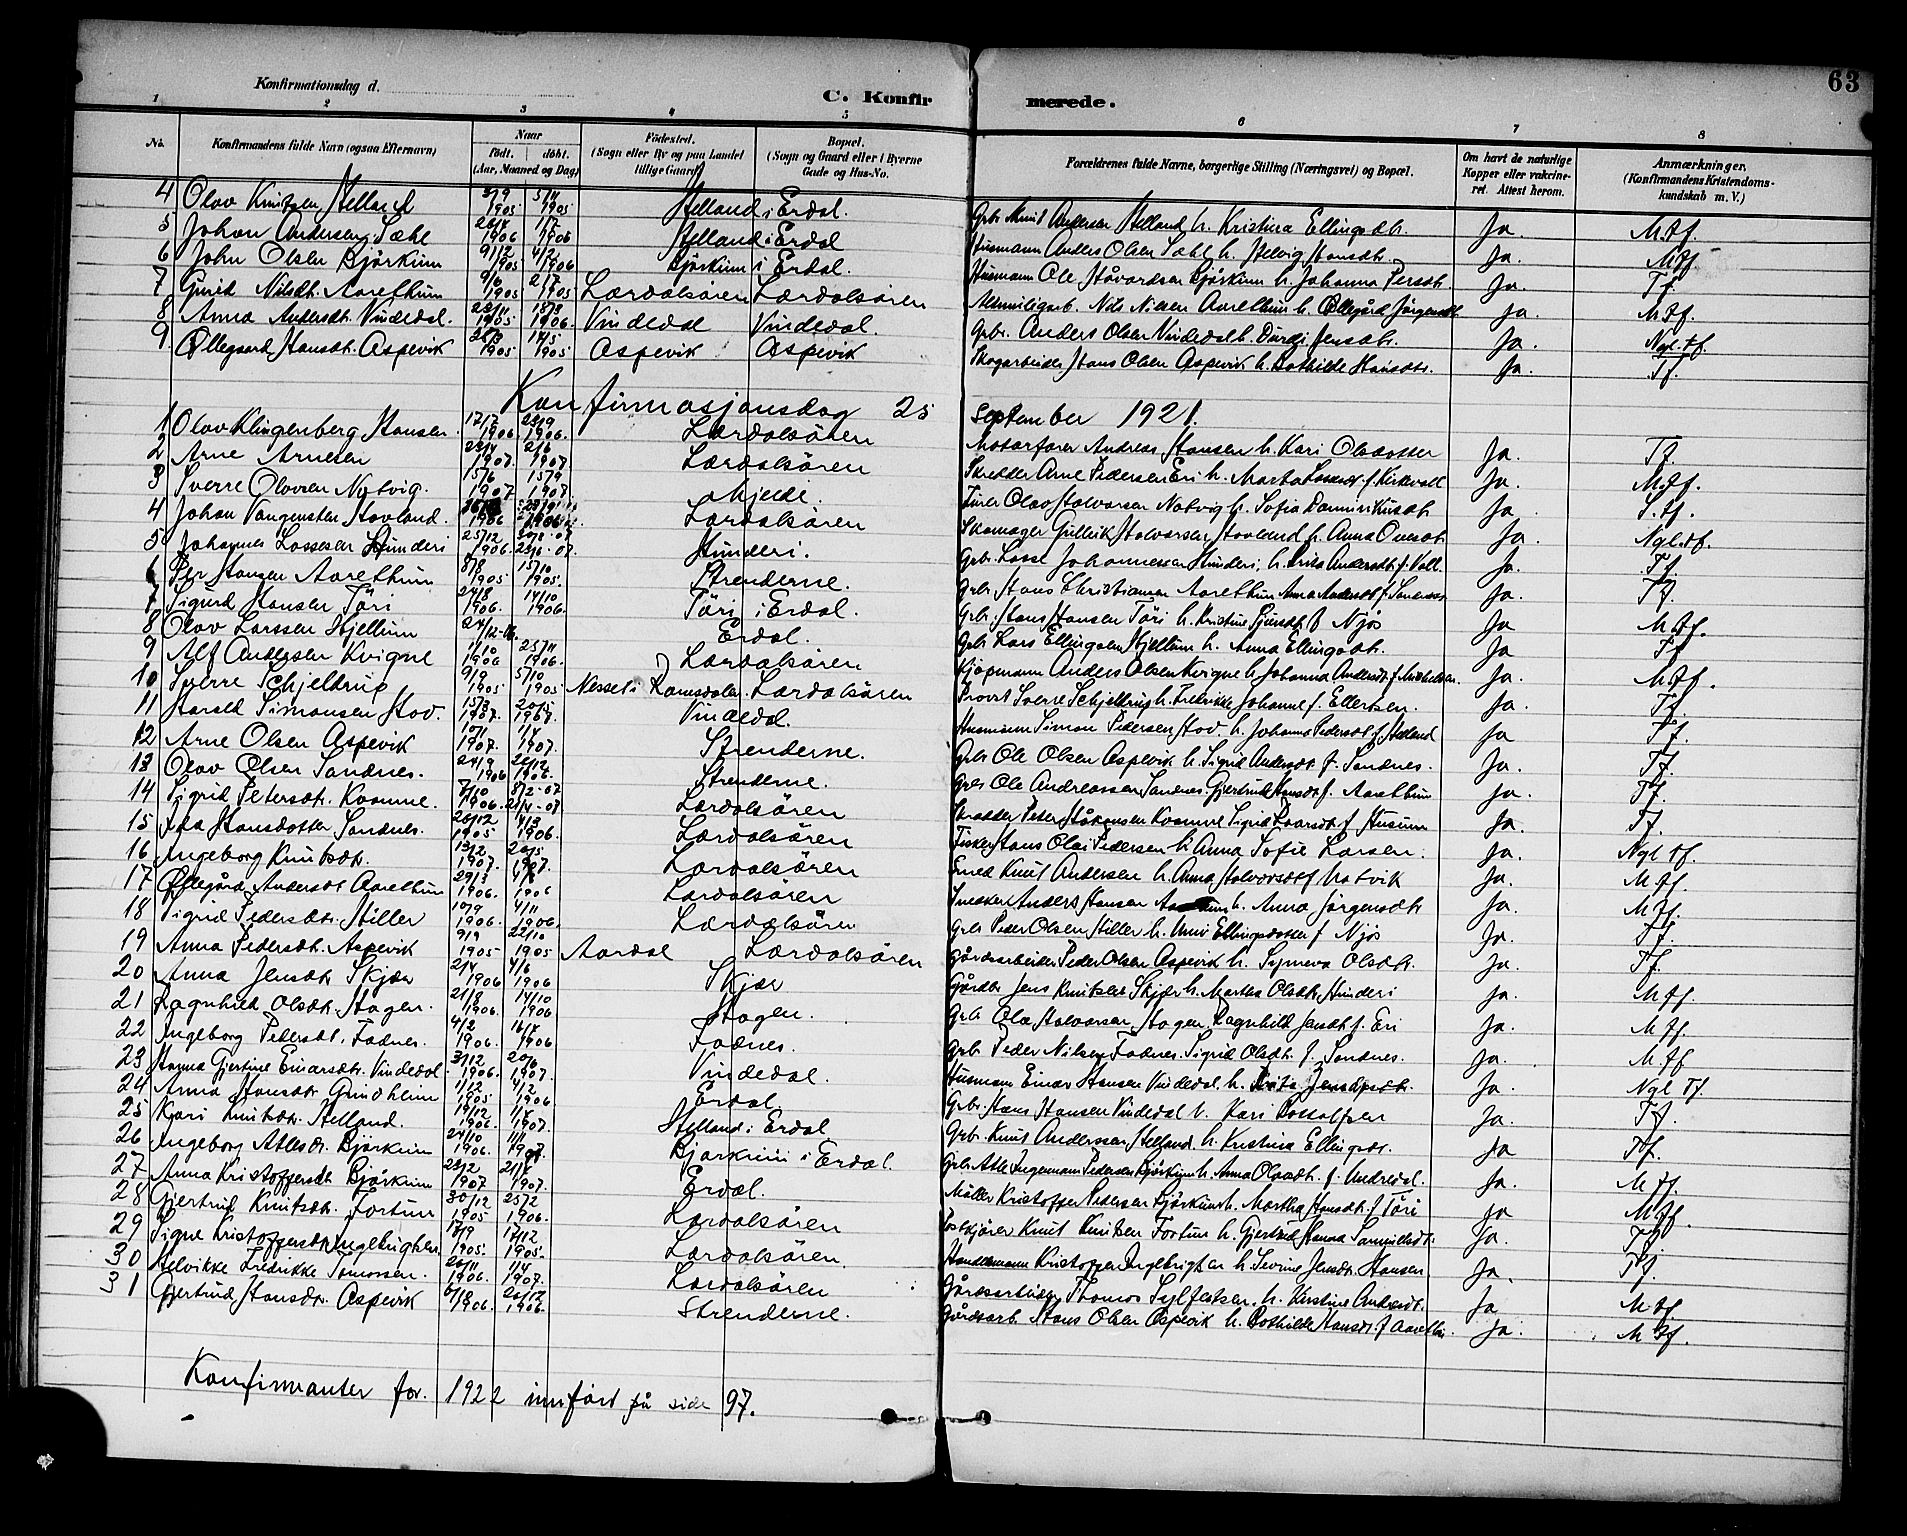 63
Konfirmationsdag d.
C. Konfirmerede.
1 2 3 4 5 6 7 8
No. Konfirmandens fulde Navn (ogsaa Efternavn) Naar født. døbt. (Aar, Maaned og Dag) Fødested. (Sogn eller By og paa Landet tillige Gaard) Bopæl. (Sogn og Gaard eller i Byerne Gade og Hus-No. Forældrenes fulde Navne, borgerlige Stilling (Næringsvei) og Bopæl. Om havt de naturlige Kopper eller vakcineret. Attest herom. Anmærkninger. (Konfirmandens Kristendomskundskab m. V.)
4 Olav Knutsen Helland 1905 1905 Helland i Erdal. Gbr. Knut Andersen Helland h. Kristina Ellingsdtr. Ja M.tf.
5 Johan Andersen Sæhl 1906 1906 Helland i Erdal Husmann Anders Olsen Sæhl h. Helvig Hansdtr. Ja. M.tf
6 John Olsen Bjørkum 1905 1906 Bjørkum i Erdal. Husmann Ole Håvardsen Bjørkum h. Johanna Persdtr. Ja. Tf
7 Gurid Nilsdt. Aarethun 9/6 1905 2/7 1905 Lærdalsøren Lærdalsøren Nils Nilsen Aarethun h. Øllegård Jørgensdt. Ja. M.tf.
8 Anna Andersdt. Vindedal. 1905 18/3 1906. Vindedal Vindedal. Gbr. Anders Olsen Vindedal h. Durdi Jensdtr. Ja. Ngl. tf.
9. Øllegaard Hansdt. Aspevik 1905 14/5 1905 Aspevik Aspevik Skogarbeider Hans Olsen Aspevik h. Bothilde Hansdtr. Ja. Tf.
Konfirmasjonsdag 25 september 1921.
1 Olav Klingenberg Hansen. 1906 23/9 1906. Lærdalsøren Motorfører Andreas Hansen h. Kari Olsdotter Ja. Tf.
2 Arne Arnesen 1907. 2/6 1907 Lærdalsøren Skredder Arne Pedersen Eri h. Marta Lassesdt. f. Kirkevoll Ja. M.tf.
3 Sverre Olavsen Natvig. 15/6 1907 15/9 1907. Olav Halvorsen Natvig h. Sofia Ja. S.tf.
4 Johan Vangensten Hovland. 1906 1906 Lærdalsøren Skomager Gullik Halvorsen Hovland h. Anna Ja. Ngl. tf.
5 Johannes Lassesen Hunderi 25/12 1906. Hunderi. Gbr. Lasse Johannessen Hunderi, h. Brita Andersdt. f. Voll. Ja. Tf.
6 Per Hansen Aarethun 8/8 1905 15/10 1905. Strenderne. Gbr. Hans Christiansen Aarethun Anna Andersdt f. Ja. Tf.
7 Sigurd Hansen Töri 24/8 1906. 14/10 1906. Töri i Erdal. Gbr. Hans Hansen Töri h. Kristine f. Njøs Ja M.tf.
8 Olav Larssen Hjellum 24/12- Erdal. Gbr. Lars Ellingsen Hjellum h. Anna Ellingsdtr. Ja Tf
9 Alf Andersen Kvigne 11/10 1906 25/11 1906. Lærdalsøren Kjøpmann Anders Olsen Kvigne h. Johanna Andersdt. f. Michelsen Ja. M.tf.
10 Sverre Schjeltrup 9/9 1905 5/10 1905 Nesset i Romsdalen. Lærdalsøren Provst Sverre Schjeltrup h. Fredrikke Johanne f. Ellertsen. Ja. Tf.
11 Harald Simonsen Hov. 15/3 1907. 20/5 1907. Vindedal. Husmann Simon Pedersen Hov. h. Johanna Pedersdt f Helland Ja Tf.
12 Arne Olsen Aspevik 10/1 1907. 1/4 1907. Strenderne. Gbr. Ole Olsen Aspevik h. Sigrid Andersdt. f. Sandnes. Ja. Tf.
13 Olav Olsen Sandnes. 24/9 1906 26/12 1906. Strenderne. Gbr. Ole Andreassen Sandnes. Gjertrud Hansdt. f. Aarethun Ja. Tf.
14 Sigrid Petersdt. Kvamme. 7/10 1906. 8/2-07 Lærdalsøren Skredder Peter Håkonsen Kvamme Sigrid f. Husum Ja. Tf.
15 Hansdotter Sandnes. 26/12 1905 4/3 1906. Lærdalsøren Fisker Hans Olai Pedersen h. Anna Sofie Larsen. Ja. Ngl tf.
16 Ingeborg Knutsdtr. 13/2 1907. 20/5 1907. Lærdalsøren Knut Andersen h. Anna Halvorsdt f Natvik Ja. M.tf.
17 Øllegård Andersdt Aarethun 29/3 1906. 1906 Lærdalsøren Snekker Anders Hansen h. Anna Jørgensdtr Ja. M.tf.
18 Sigrid Pedersdtr. Hiller 10/9 1906. 4/11 1906. Lærdalsøren Gbr. Peder Olsen Hiller h. Unni Ellingsdotter f Njøs Ja. Tf.
19 Anna Pedersdt. Aspevik 9/9 1905 22/10 1905 Aardal Lærdalsøren Gårdsarbeider Peder Olsen Aspevik h. Synneva Olsdtr. Ja. Tf.
20 Anna Jensdtr Skjær 2/4 1906 4/6 1906 Skjær Gårdbr Jens Knutsen Skjær h. Martha Olsdtr. Hunderi Ja. M.tf.
21 Ragnhild Olsdtr. Hagen. 21/8 1906. 14/10 1906 Hagen. Gbr. Ola Halvorsen Hagen Ragnhild Jensdt. f. Eri Ja. M.tf.
22 Ingeborg Pedersdt. Fodnes. 4/2 1906. 16/4 1906 Fodnes. Gbr. Peder Nilsen Fodnes. Sigrid Olsdt. f. Sandnes. Ja. M.tf
23 Hanna Gjertine Einarsdtr. Vindedal 3/12 1906. 1907. Vindedal. Husmann Einar Hansen Vindedal, h. Brita Jensdtr. Ja. Ngl Tf.
24 Anna Hansdt. Grindheim 1/12 1905 4/2 1906 Erdal Gbr. Hans Hansen Vindedal h. Kari Ja. Tf.
25 Kari Knutsdtr. Helland. 19/12 1906. 1/4 1907. Helland i Erdal Gbr. Knut Andersen Helland. h. Kristina Ellingsdtr. Ja Tf.
26 Ingeborg Atlesdtr. Bjørkum 24/10 1906. 1907. Bjørkum i Erdal. Gbr. Atle Ingemann Pedersen Bjørkum h. Anna Olsdt. f. Andredal. Ja. M.tf.
27 Anna Kristoffersdt. Bjørkum 23/2 1907 21/4 1907. Erdal. Møller Kristoffer Pedersen Bjørkum h. Martha Hansdt. f Töri Ja M.tf.
28 Gjertrud Knutsdtr. Fortun 30/12 1905 25/2 1906. Lærdalsøren Knut Knutsen Fortun h. Gjertrud Hanna Samuelsdtr. Ja. Tf.
29 Signe Kristoffersdtr. Ingebrigtsen 17/9 1905. 17/12 1905. Lærdalsøren. Handelsmann Kristoffer Ingebrigtsen h. Severine Jensdtr. Hansen. Ja. Tf.
30 Helvikke Fredrikke Tomassen. 26/11 1906. 1/4 1907. Lærdalsøren Gårdsarbeider Thomas Sylfestsen. h. Kirstine Andersdt. Ja M.tf.
31 Gjertrud Hansdtr. Aspevik 6/8 1906. 26/12 1906 Strenderne. Gårdsarb. Hans Olsen Aspevik h. Bothilde Hansdt. f Aarethun. Ja. M.tf.
Konfirmanter for. 1922 innført på side 97.